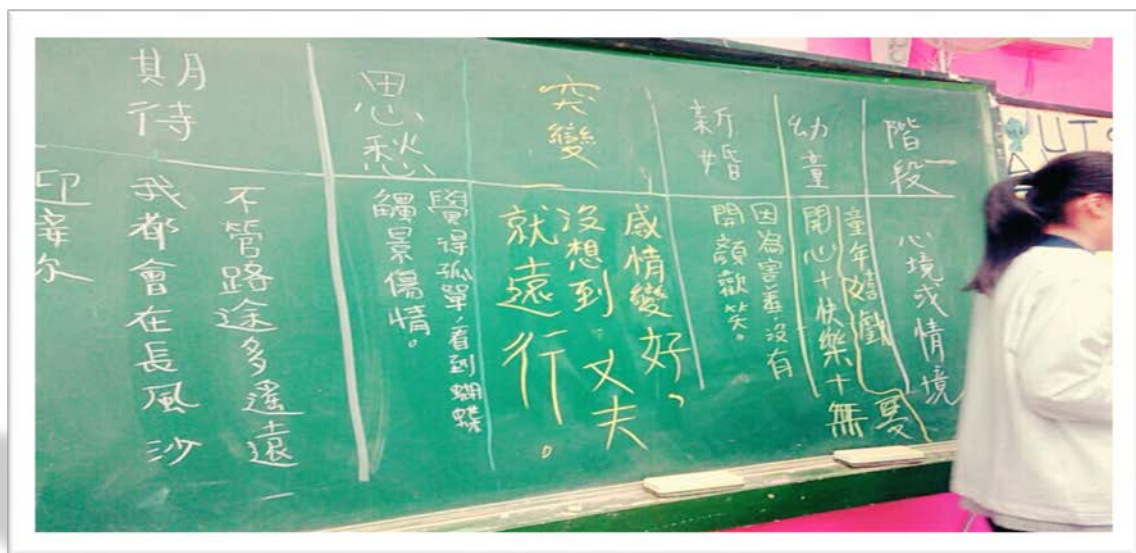 階段
心境或情境
幼童
童年嬉戲
開心+快樂+無憂
新婚
因為害羞,沒有
開顏歡笑。
突變
感情變好,
沒想到丈夫
就遠行。
思愁
覺得孤單,看到蝴蝶
觸景傷情。
期待
不管路途多遙遠
我都會在長風沙
迎接你